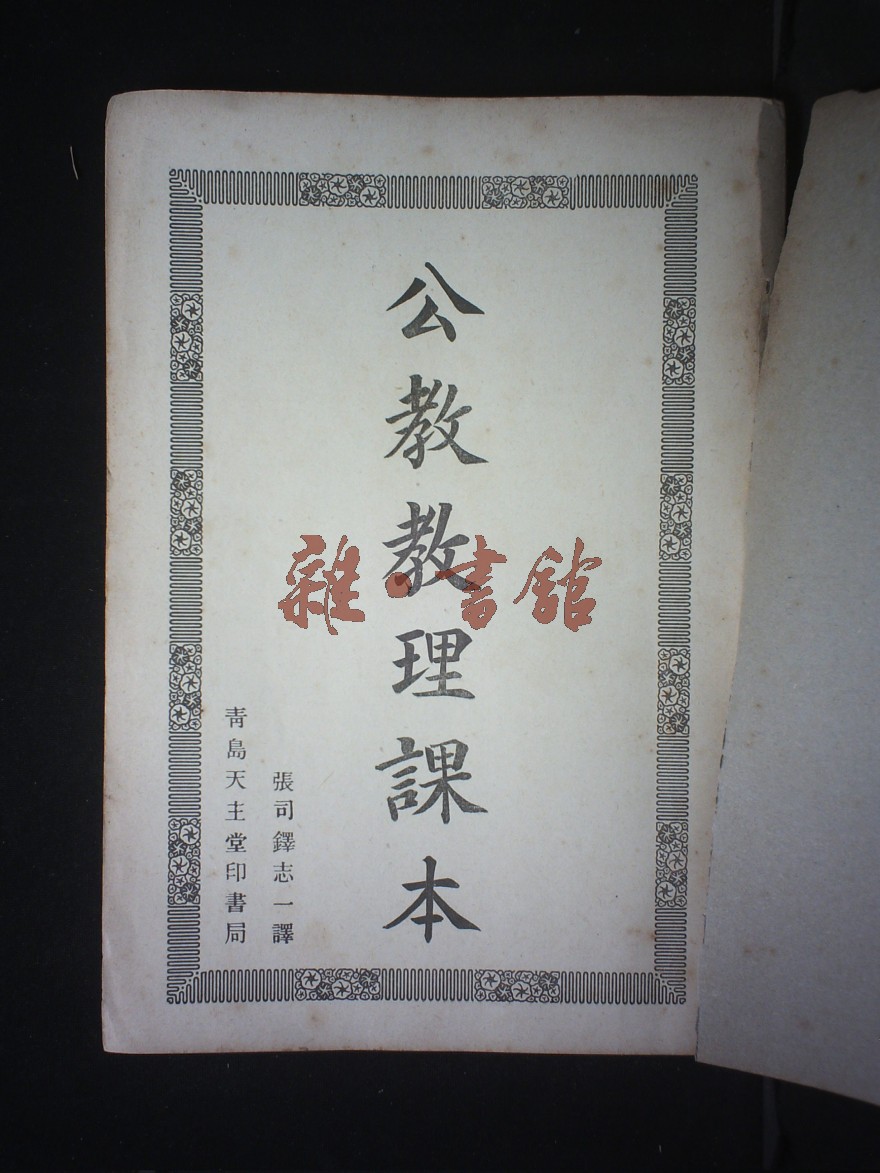 公教教理課本
張司鐸志一譯
青島天主堂印書局
雜·書館